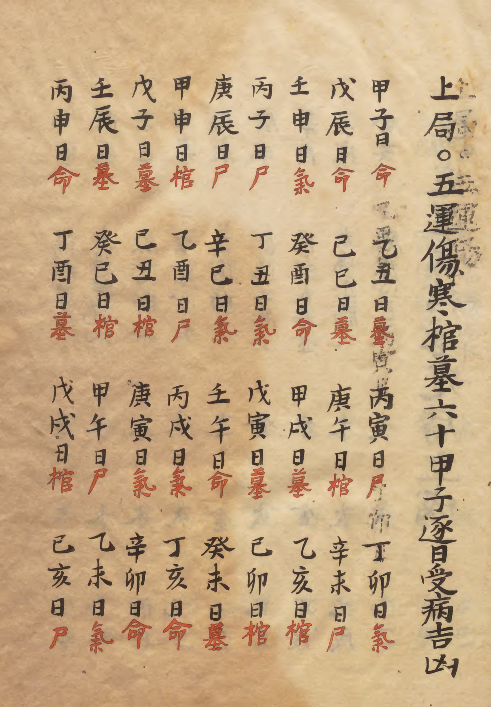 上局。五運傷寒棺墓六十甲子逐日受病吉凶
甲子日命 乙丑日墓 丙寅日尸 丁卯日氣
戊辰日命 己巳日墓 庚午日棺 辛未日尸
壬申日氣 癸酉日命 甲戌日墓 乙亥日棺
丙子日尸 丁丑日氣 戊寅日墓 己卯日棺
庚辰日尸 辛巳日氣 壬午日命 癸未日墓
甲申日棺 乙酉日尸 丙戌日氣 丁亥日命
戊子日墓 己丑日棺 庚寅日氣 辛卯日命
壬辰日墓 癸巳日棺 甲午日尸 乙未日氣
丙申日命 丁酉日墓 戊戌日棺 己亥日尸